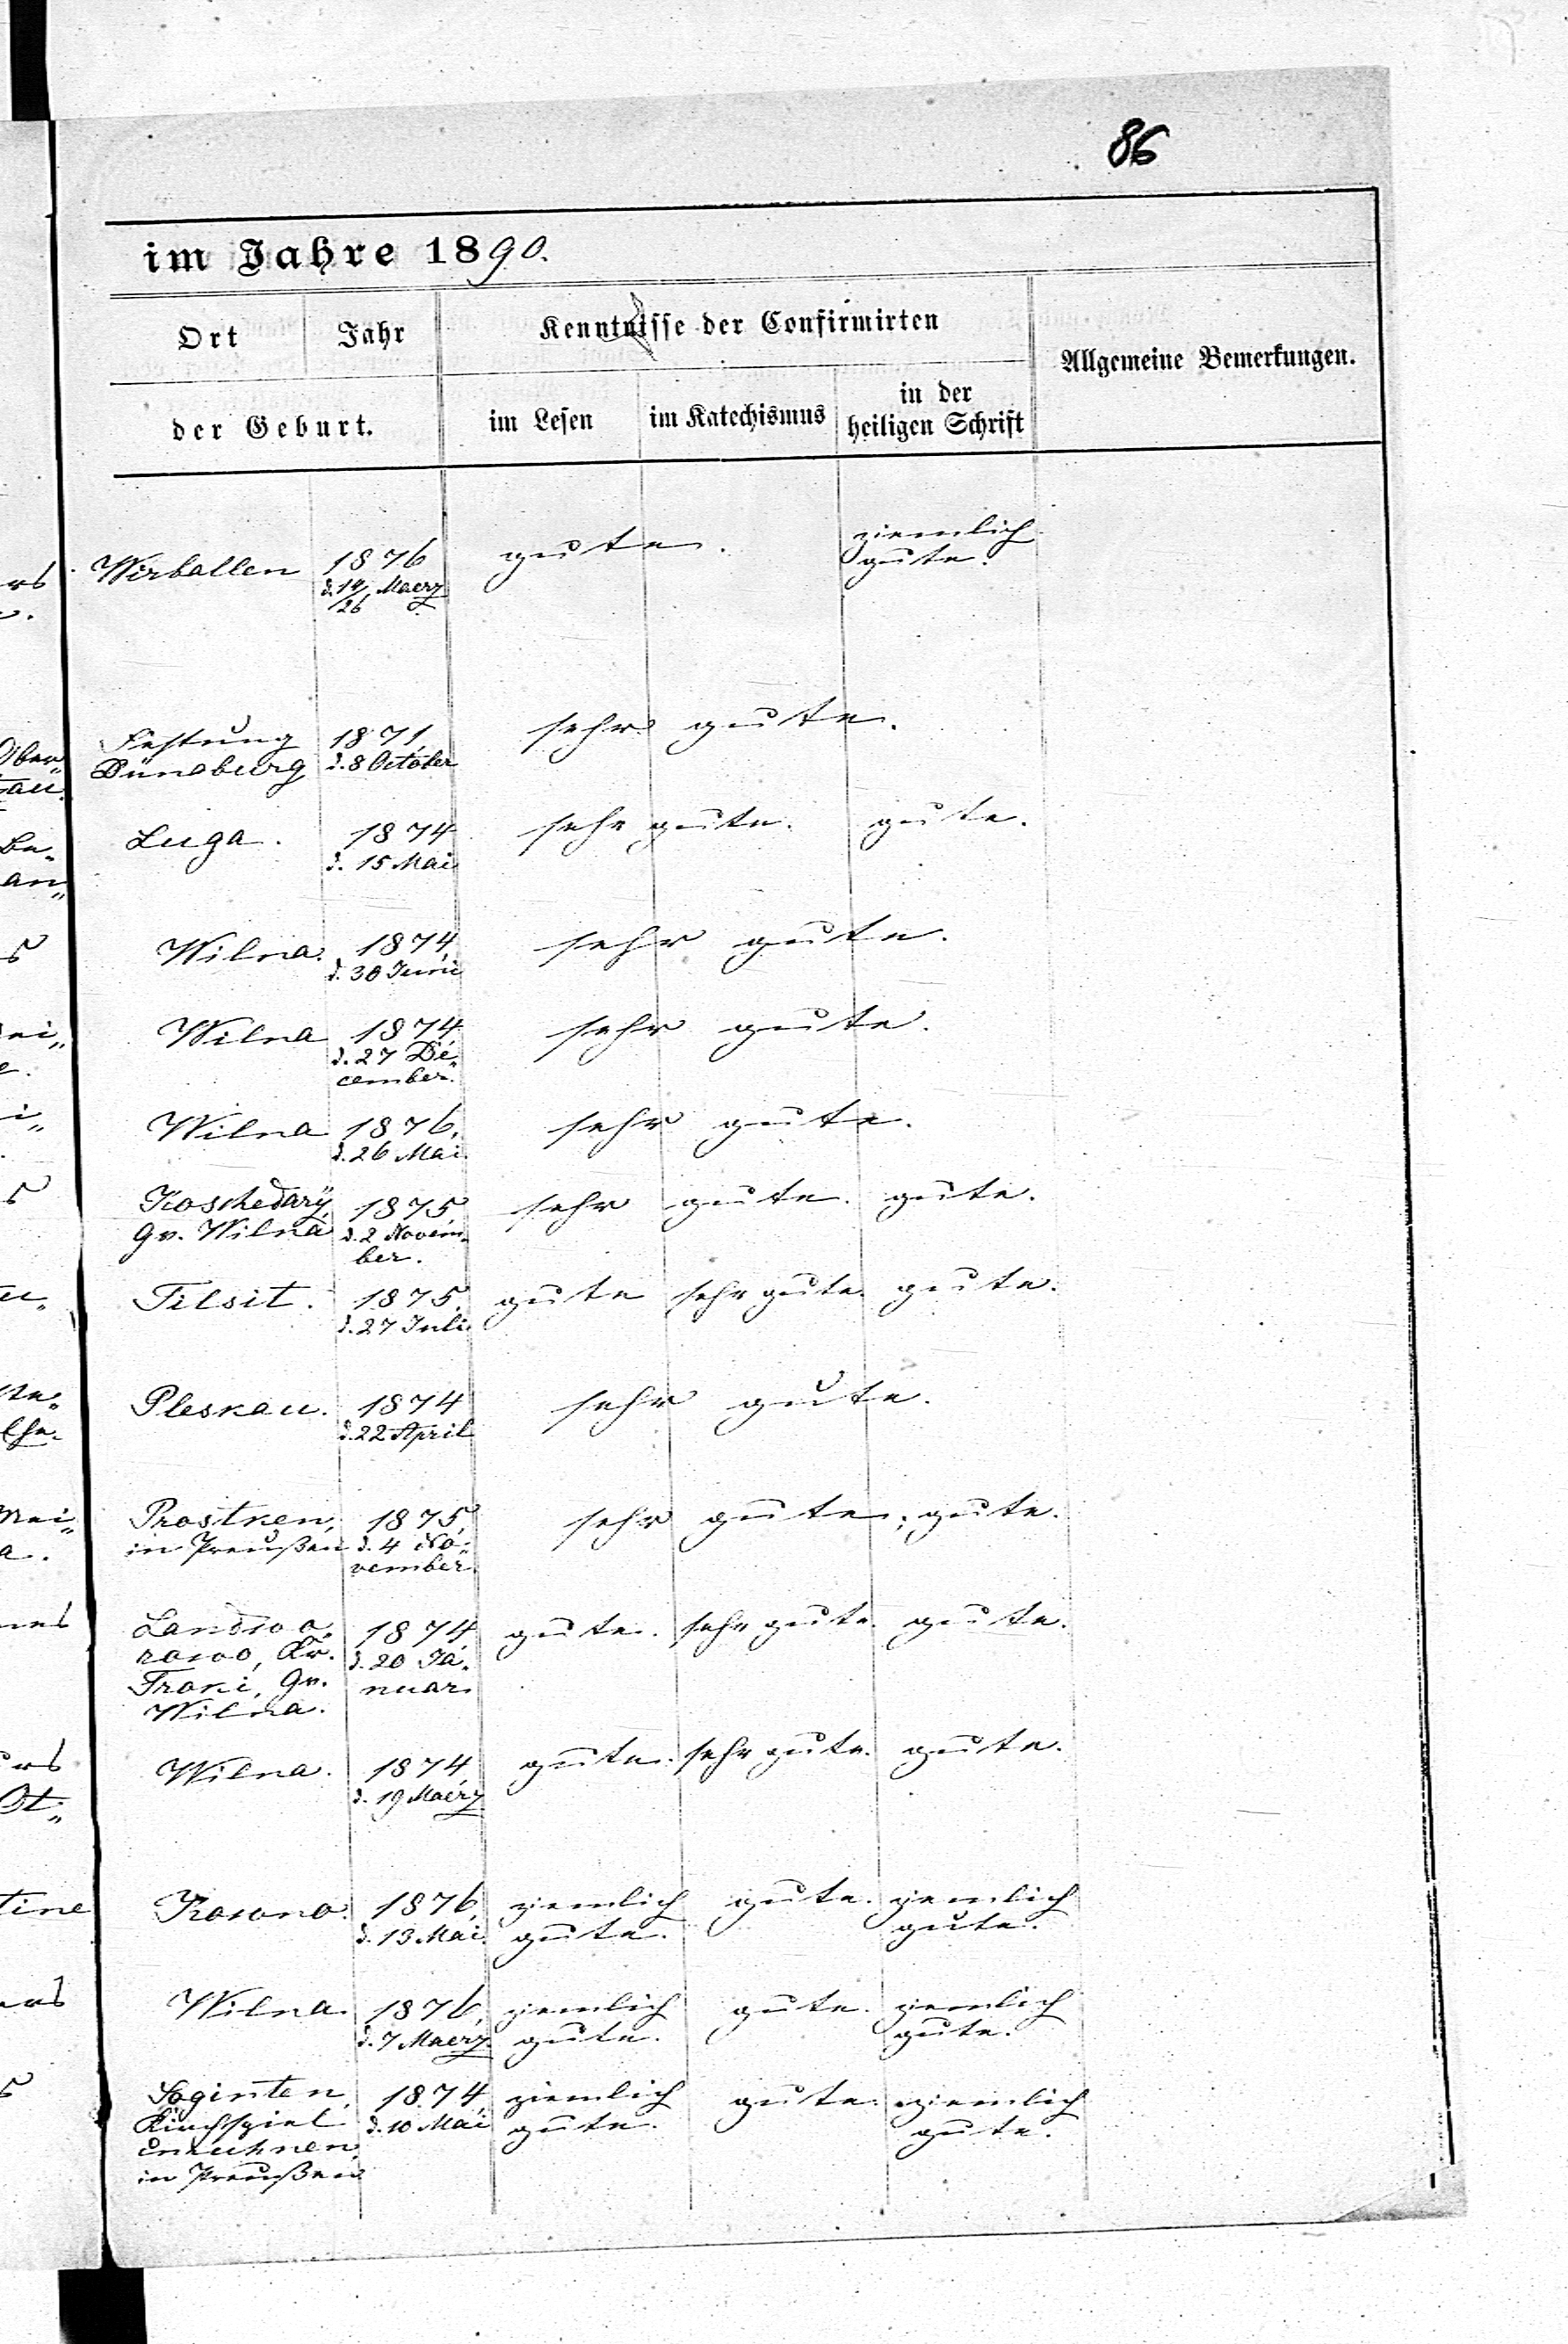 86
im Jahre 1890.
Ort Jahr Kenntnisse der Confirmirten Allgemeine Bemerkungen.
der Geburt. im Lesen im Katechismus in der
heiligen Schrift
Wirballen 1876 gute. ziemlich
d. 14/26 Maerz gute.
Festung 1871, sehr gute.
Dünaburg d. 8 October
Luga. 1874 sehr gute. gute.
d. 15 Mai
Wilna. 1874, sehr gute.
d. 30 Juni
Wilna 1874, sehr gute.
d. 27 De„
cember.
Wilna 1876, sehr gute.
d. 26 Mai.
Koschedary, 1875, sehr gute. gute.
Gv. Wilna d. 2 Novem„
ber.
Tilsit. 1875, gute sehr gute. gute.
d. 27 Juli.
Pleskau. 1874 sehr gute.
d. 22 April
Prostken, 1875, sehr gute; gute.
in Preußen d. 4 No„
vember.
Landwa„ 1874, gute. sehr gute. gute.
rowo, Kr. d. 20 Ja„
Troki, Gv. nuar.
Wilna.
Wilna. 1874, gute. sehr gute. gute.
d. 19 Maerz
Kowno. 1876, ziemlich gute. ziemlich
d. 13 Mai. gute. gute.
Wilna. 1876, ziemlich gute. ziemlich
d. 7 Maerz. gute. gute.
1874, ziemlich gute. ziemlich
Kirchspiel d. 10 Mai gute. gute.
in Preußen